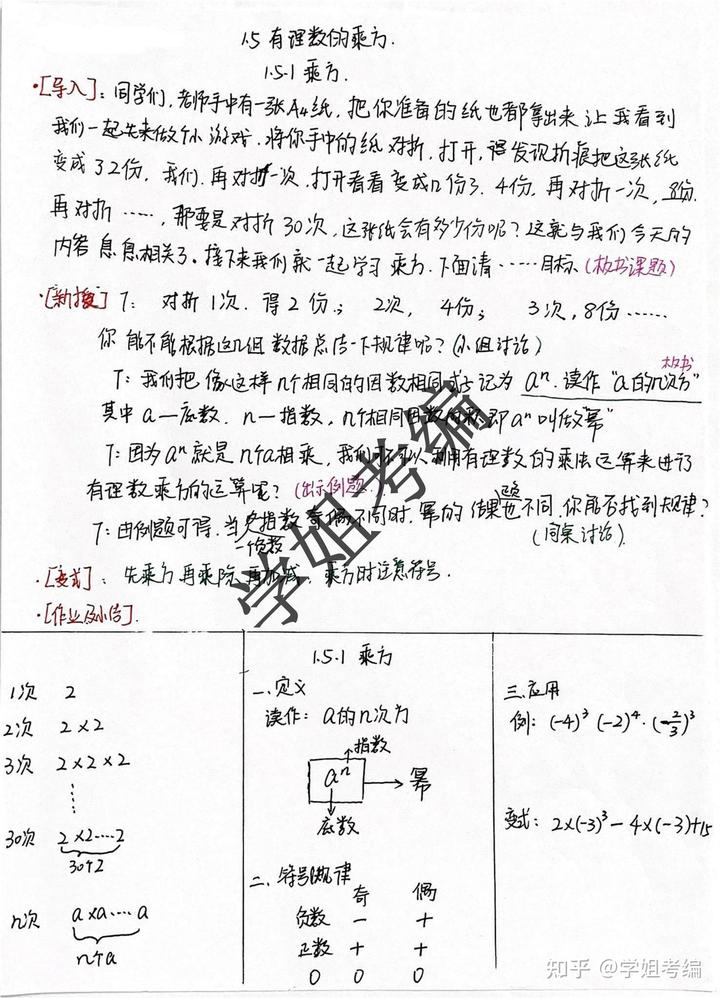 1.5 有理数的乘方.
1.5.1 乘方.
·[导入]: 同学们, 老师手中有一张A4纸, 把你准备的纸也都拿出来让我看到
我们一起先来做个小游戏. 将你手中的纸对折, 打开, 发现折痕把这张纸
变成了2份, 我们, 再对折一次, 打开看看变成几份了. 4份, 再对折一次, 8份.
再对折……, 那要是对折30次, 这张纸会有多少份呢? 这就与我们今天的
内容息息相关了. 接下来我们就一起学习乘方. 下面请……目标. (板书课题)
·[新授] T: 对折1次. 得2份; 2次, 4份; 3次, 8份……
你能不能根据这几组数据总结一下规律呢? (小组讨论)
板书
T: 我们把像这样n个相同的因数相乘记为 aⁿ. 读作 “a的n次方”
其中a—底数. n—指数, n个相同因数的积即aⁿ叫做“幂”
T: 因为aⁿ就是n个a相乘, 我们可不可以利用有理数的乘法运算来进行
有理数乘方的运算呢? (出示例题.)
T: 由例题可得. 当负指数奇偶不同时. 幂的结果也不同. 你能否找到规律?
负数
(同桌讨论)
·[变式]: 先乘方再乘除再加减. 乘方时注意符号.
·[作业及小结].
1.5.1 乘方
1次 2
2次 2×2
3次 2×2×2
⋮
30次 2×2……2
30个2
n次 a×a…… a
n个a
一、定义
读作: a的n次方
指数
aⁿ → 幂
底数
二、符号规律
奇 偶
负数 − +
正数 + +
0 0 0
三.应用
例: (-4)³ (-2)⁴ · (-2/3)³
变式: 2×(-3)³ − 4×(-3)+15
学姐考编
知乎 @学姐考编